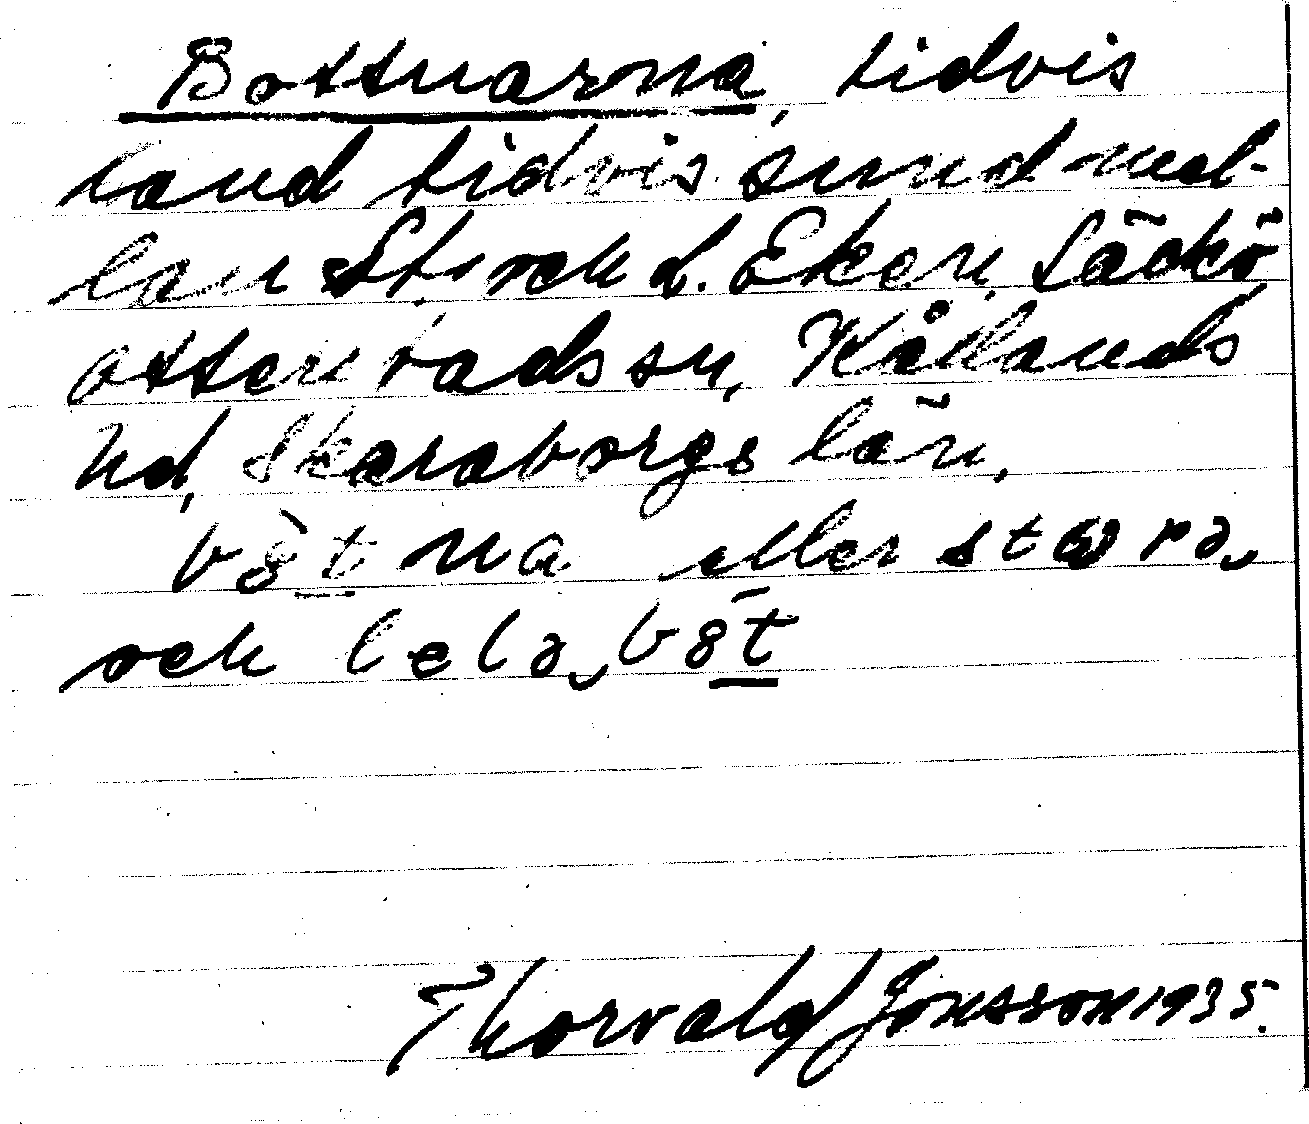 Bottnarna, tidvis
land tidvis sund mel-
lan St. och L. Eken, Läckö
Otterstads sn, Kållands
hd, Skaraborgs län.
eller
och
Thorvald Jonsson 1935.